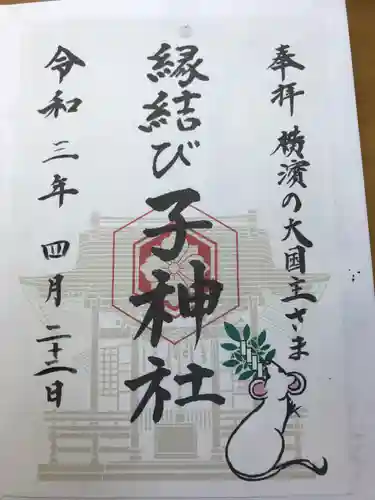 奉拝 横濱の大国主さま
縁結び子神社
令和三年 四月二十一日